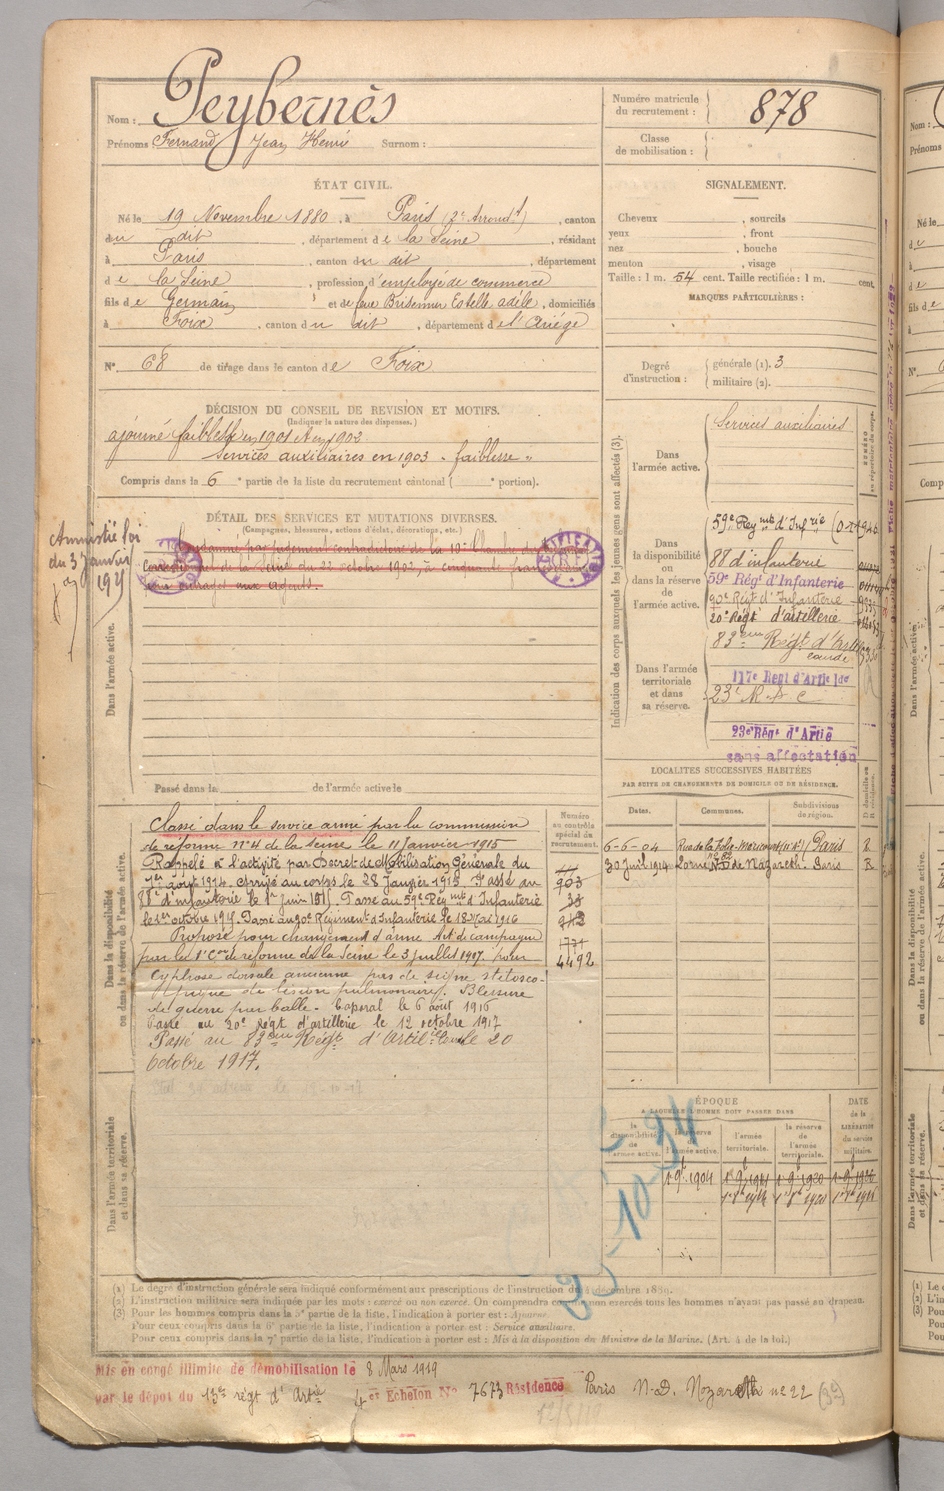 Nom : Peybernès
Prénoms Fernand Jean Henri Surnom :
Numéro matricule du recrutement : 878
Classe de mobilisation :
ÉTAT CIVIL.
Né le 19 Novembre 1880, à Paris (2e Arrondt), canton
du dit, département de la Seine, résidant
à Paris, canton du dit, département
de la Seine, profession d'employé de commerce
fils de Germain et de feue Brisemur Estelle adèle, domiciliés
à Foix, canton du dit, département de l'Ariége
N° 68 de tirage dans le canton de Foix
SIGNALEMENT.
Cheveux , sourcils
yeux , front
nez , bouche
menton , visage
Taille : 1 m. 54 cent. Taille rectifiée : 1 m. cent.
MARQUES PARTICULIÈRES :
Degré d'instruction : générale (1). 3
militaire (2).
DÉCISION DU CONSEIL DE REVISION ET MOTIFS.
(Indiquer la nature des dispenses.)
ajourné faiblesse en 1901 et en 1902
Services auxiliaires en 1903 - faiblesse "
Compris dans la 6e partie de la liste du recrutement cantonal ( e portion).
DÉTAIL DES SERVICES ET MUTATIONS DIVERSES.
(Campagnes, blessures, actions d'éclat, décorations, etc.)
Amnistié loi
du 3 Janvier
Condamné par jugement contradictoire de la 10e Chambre du
Correctionnel de la Seine du 22 octobre 1902, à cinquante francs
pour outrages aux agents.
Dans l'armée active.
Passé dans la de l'armée active le
Indication des corps auxquels les jeunes gens sont affectés (3).
Dans l'armée active.
Services auxiliaires
Dans la disponibilité ou dans la réserve de l'armée active.
59e Regmt d'Infrie
88 d'infanterie
59e Régt d'Infanterie
90e Régt d'Infanterie
20e Régt d'artillerie
83ème Régt d'Artie
lourde
Dans l'armée territoriale et dans sa réserve.
117e Regt d'Artie lde
23e R.A.C
23e Régt d'Artie
sans affectation
LOCALITÉS SUCCESSIVES HABITÉES
PAR SUITE DE CHANGEMENTS DE DOMICILE OU DE RÉSIDENCE.
Dates. Communes. Subdivisions de région. D. domicile R. résidence.
6-6-04 Rue de la Folie-Méricourt Paris R
30 Juin 1914 N.D de Nazareth. Paris R
Dans la disponibilité ou dans la réserve de l'armée active.
Numéro au contrôle spécial du recrutement.
903
33
912
1771
4492
Classé dans le service armé par la commission
de réforme n°4 de la Seine le 11 Janvier 1915
Rappelé à l'activité par Décret de Mobilisation Générale du
1er août 1914. Arrivé au corps le 28 Janvier 1915. Passé au
88e d'infanterie le 1er juin 1915. Passé au 59e Regmt d'Infanterie
le 1er octobre 1915. Passé au 90e Régiment d'Infanterie le 18 Mai 1916
Proposé pour changement d'arme Art. de campagne
par la 1e Con de réforme de la Seine le 3 juillet 1917. pour
cyphose dorsale ancienne pas de signe stétosco-
pique de lésion pulmonaire. Blessure
de guerre par balle. Caporal le 6 août 1916
Passé au 20e Régt d'artillerie le 12 octobre 1917
Passé au 83ème Régt d'Artilie Lourde le 20
Octobre 1917.
Dans l'armée territoriale et dans sa réserve.
ÉPOQUE
A LAQUELLE L'HOMME DOIT PASSER DANS
la disponibilité de l'armée active. la réserve de l'armée active. l'armée territoriale. la réserve de l'armée territoriale.
DATE de la LIBÉRATION du service militaire.
(1) Le degré d'instruction générale sera indiqué conformément aux prescriptions de l'instruction du 4 décembre 1889.
(2) L'instruction militaire sera indiquée par les mots : exercé ou non exercé. On comprendra comme non exercés tous les hommes n'ayant pas passé au drapeau.
(3) Pour les hommes compris dans la 5e partie de la liste, l'indication à porter est : Ajourné.
Pour ceux compris dans la 6e partie de la liste, l'indication à porter est : Service auxiliaire.
Pour ceux compris dans la 7e partie de la liste, l'indication à porter est : Mis à la disposition du Ministre de la Marine. (Art. 4 de la loi.)
Mis en congé illimité de démobilisation le 8 Mars 1919
par le dépôt du 13e régt d'Artie 4e Echelon N° 7673 Résidence Paris N-D. Nazareth n° 22 (3e)